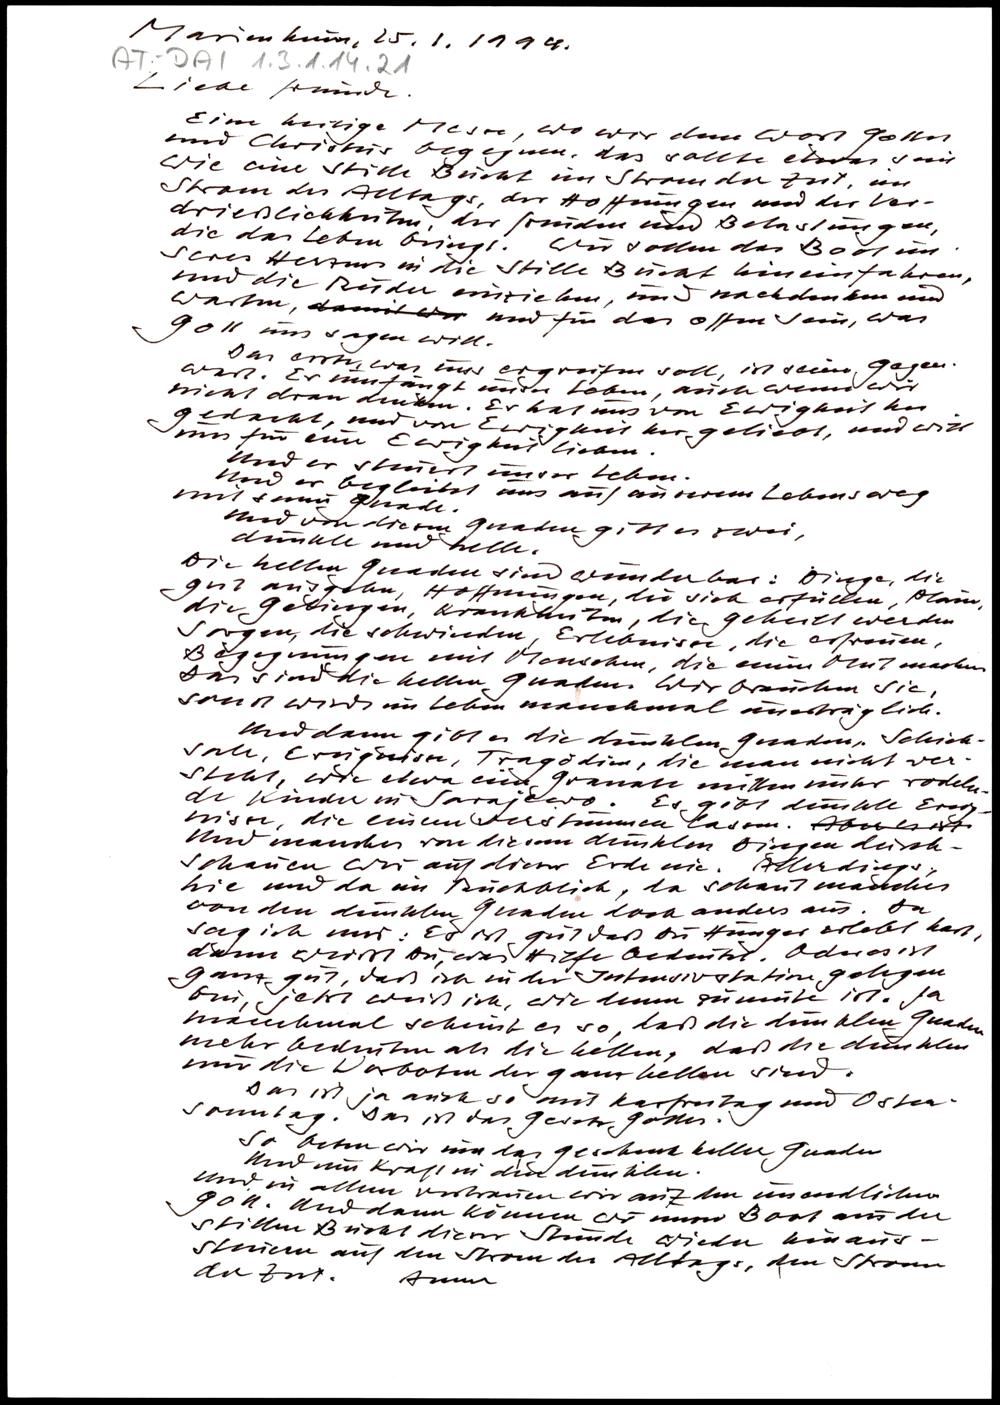 Marienheim, 25.1.1994.
AT-DAI 1.3.1.14.21
Liebe Freunde.
Eine heilige Messe, wo wir dem Wort Gottes
und Christus begegnen, das sollte etwas sein
wie eine stille Bucht im Strom der Zeit, im
Strom des Alltags, der Hoffnungen und der Ver-
drießlichkeiten, der Freuden und Belastungen,
die das Leben bringt. Wir sollen das Boot un-
seres Herzens in die stille Bucht hineinfahren,
und die Ruder einziehen, und nachdenken und
warten, damit wir und für das offen sein, was
Gott uns sagen will.
Das erste, was uns ergreifen soll, ist seine Gegen-
wart. Er umfängt unser Leben, auch wenn wir
nicht dran denken. Er hat uns von Ewigkeit her
gedacht, und von Ewigkeit her geliebt, und will
uns für eine Ewigkeit lieben.
Und er steuert unser Leben.
Und er begleitet uns auf unserem Lebensweg
mit seiner Gnade.
Und von diesen Gnaden gibt es zwei,
dunkle und helle.
Die hellen Gnaden sind wunderbar: Dinge, die
gut ausgehn, Hoffnungen, die sich erfüllen, Pläne,
die gelingen, Krankheiten, die geheilt werden
Sorgen, die schwinden, Erlebnisse, die erfreuen,
Begegnungen mit Menschen, die einem Mut machen
Das sind die hellen Gnaden. Wir brauchen sie,
sonst wird's im Leben manchmal unerträglich.
Und dann gibt es die dunklen Gnaden. Schick-
sale, Ereignisse, Tragödien, die man nicht ver-
steht, wie etwa eine Granate mitten unter rodeln-
de Kinder in Sarajewo. Es gibt dunkle Ereig-
nisse, die einen verstummen lassen. Aber es ist
Und manches von diesen dunklen Dingen durch-
schauen wir auf dieser Erde nie. Allerdings,
hie und da im Rückblick, da schaut manches
von den dunklen Gnaden doch anders aus. Da
sag ich mir: Es ist gut daß Du Hunger erlebt hast,
dann weißt Du, was Hilfe bedeutet. Oder es ist
ganz gut, daß ich in der Intensivstation gelegen
bin, jetzt weiß ich, wie denen zumute ist. Ja
manchmal scheint es so, daß die dunklen Gnaden
mehr bedeuten als die hellen, daß die dunklen
nur die Vorboten der ganz hellen sind.
Das ist ja auch so mit Karfreitag und Oster-
sonntag. Das ist das Gesetz Gottes.
So beten wir um das Geschenk heller Gnaden
Und um Kraft in den dunklen.
Und in allem vertrauen wir auf den unendlichen
Gott. Und dann können wir unser Boot aus der
stillen Bucht dieser Stunde wieder hinaus-
steuern auf den Strom des Alltags, den Strom
der Zeit. Amen